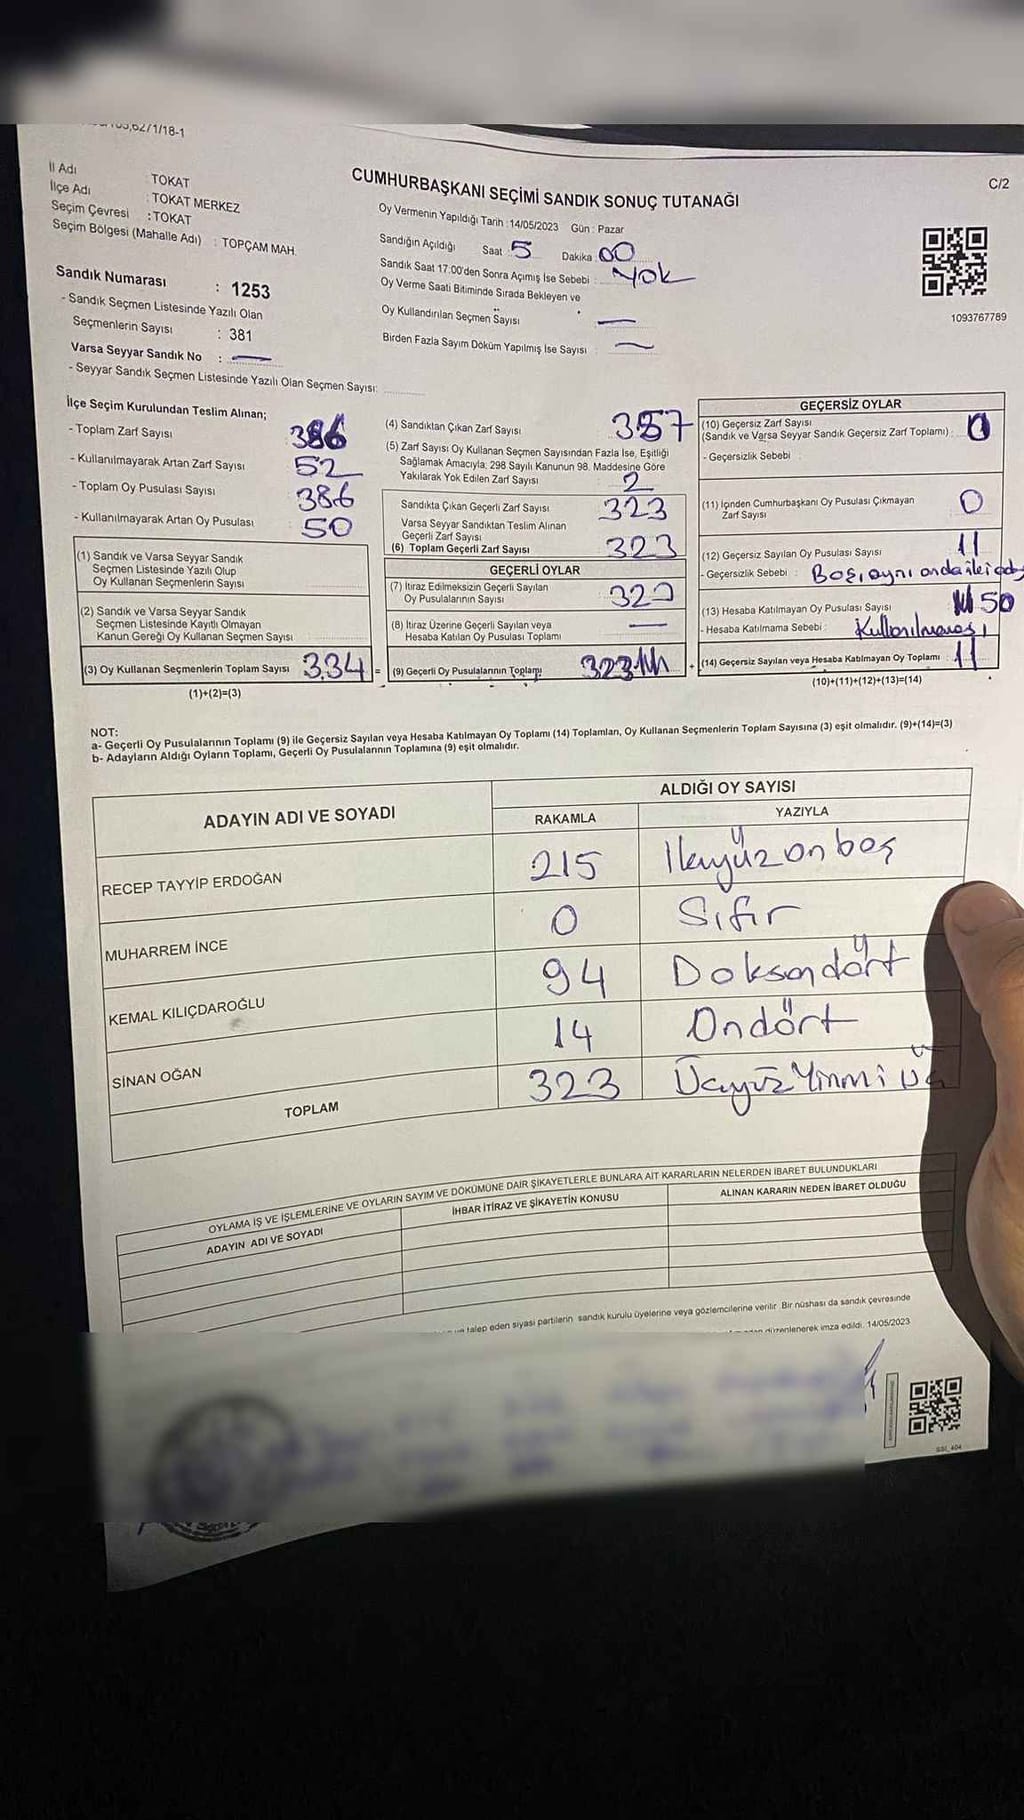 6271/18-1
İl Adı : TOKAT
İlçe Adı : TOKAT MERKEZ
Seçim Çevresi : TOKAT
Seçim Bölgesi (Mahalle Adı) : TOPÇAM MAH.
CUMHURBAŞKANI SEÇİMİ SANDIK SONUÇ TUTANAĞI
C/2
Oy Vermenin Yapıldığı Tarih : 14/05/2023 Gün : Pazar
Sandığın Açıldığı Saat : 5 Dakika : 00
Sandık Saat 17:00'den Sonra Açımış İse Sebebi : Yok
Oy Verme Saati Bitiminde Sırada Bekleyen ve
Oy Kullandırılan Seçmen Sayısı : —
Birden Fazla Sayım Döküm Yapılmış İse Sayısı : —
1093767789
Sandık Numarası : 1253
- Sandık Seçmen Listesinde Yazılı Olan
Seçmenlerin Sayısı : 381
Varsa Seyyar Sandık No : —
- Seyyar Sandık Seçmen Listesinde Yazılı Olan Seçmen Sayısı:
İlçe Seçim Kurulundan Teslim Alınan;
- Toplam Zarf Sayısı : 386
- Kullanılmayarak Artan Zarf Sayısı : 52
- Toplam Oy Pusulası Sayısı : 386
- Kullanılmayarak Artan Oy Pusulası : 50
(1) Sandık ve Varsa Seyyar Sandık
Seçmen Listesinde Yazılı Olup
Oy Kullanan Seçmenlerin Sayısı
(2) Sandık ve Varsa Seyyar Sandık
Seçmen Listesinde Kayıtlı Olmayan
Kanun Gereği Oy Kullanan Seçmen Sayısı
(3) Oy Kullanan Seçmenlerin Toplam Sayısı 334 =
(1)+(2)=(3)
(4) Sandıktan Çıkan Zarf Sayısı : 357
(5) Zarf Sayısı Oy Kullanan Seçmen Sayısından Fazla İse, Eşitliği
Sağlamak Amacıyla; 298 Sayılı Kanunun 98. Maddesine Göre
Yakılarak Yok Edilen Zarf Sayısı : 2
Sandıkta Çıkan Geçerli Zarf Sayısı 323
Varsa Seyyar Sandıktan Teslim Alınan
Geçerli Zarf Sayısı
(6) Toplam Geçerli Zarf Sayısı 323
GEÇERLİ OYLAR
(7) İtiraz Edilmeksizin Geçerli Sayılan
Oy Pusulalarının Sayısı 323
(8) İtiraz Üzerine Geçerli Sayılan veya
Hesaba Katılan Oy Pusulası Toplamı —
(9) Geçerli Oy Pusulalarının Toplamı 323 +
GEÇERSİZ OYLAR
(10) Geçersiz Zarf Sayısı
(Sandık ve Varsa Seyyar Sandık Geçersiz Zarf Toplamı) : 0
- Geçersizlik Sebebi :
(11) İçinden Cumhurbaşkanı Oy Pusulası Çıkmayan
Zarf Sayısı 0
(12) Geçersiz Sayılan Oy Pusulası Sayısı 11
- Geçersizlik Sebebi : Boş, aynı anda iki
(13) Hesaba Katılmayan Oy Pusulası Sayısı 50
- Hesaba Katılmama Sebebi : Kullanılmaması
(14) Geçersiz Sayılan veya Hesaba Katılmayan Oy Toplamı : 11
(10)+(11)+(12)+(13)=(14)
NOT:
a- Geçerli Oy Pusulalarının Toplamı (9) ile Geçersiz Sayılan veya Hesaba Katılmayan Oy Toplamı (14) Toplamları, Oy Kullanan Seçmenlerin Toplam Sayısına (3) eşit olmalıdır. (9)+(14)=(3)
b- Adayların Aldığı Oyların Toplamı, Geçerli Oy Pusulalarının Toplamına (9) eşit olmalıdır.
ADAYIN ADI VE SOYADI
ALDIĞI OY SAYISI
RAKAMLA YAZIYLA
RECEP TAYYİP ERDOĞAN 215 İkiyüz on beş
MUHARREM İNCE 0 Sıfır
KEMAL KILIÇDAROĞLU 94 Doksandört
SİNAN OĞAN 14 Ondört
TOPLAM 323 Üçyüz Yirmi üç
OYLAMA İŞ VE İŞLEMLERİNE VE OYLARIN SAYIM VE DÖKÜMÜNE DAİR ŞİKAYETLERLE BUNLARA AİT KARARLARIN NELERDEN İBARET BULUNDUKLARI
ADAYIN ADI VE SOYADI
İHBAR İTİRAZ VE ŞİKAYETİN KONUSU
ALINAN KARARIN NEDEN İBARET OLDUĞU
talep eden siyasi partilerin sandık kurulu üyelerine veya gözlemcilerine verilir. Bir nüshası da sandık çevresinde
düzenlenerek imza edildi. 14/05/2023
SSİ_404